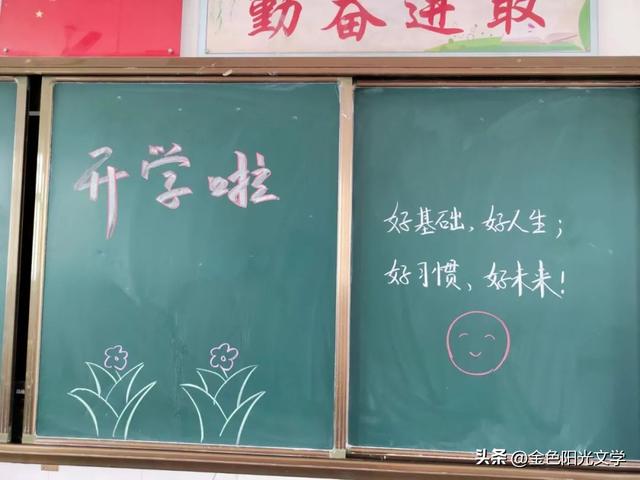 勤奋进取
开学啦
好基础、好人生;
好习惯、好未来!
头条 @金色阳光文学